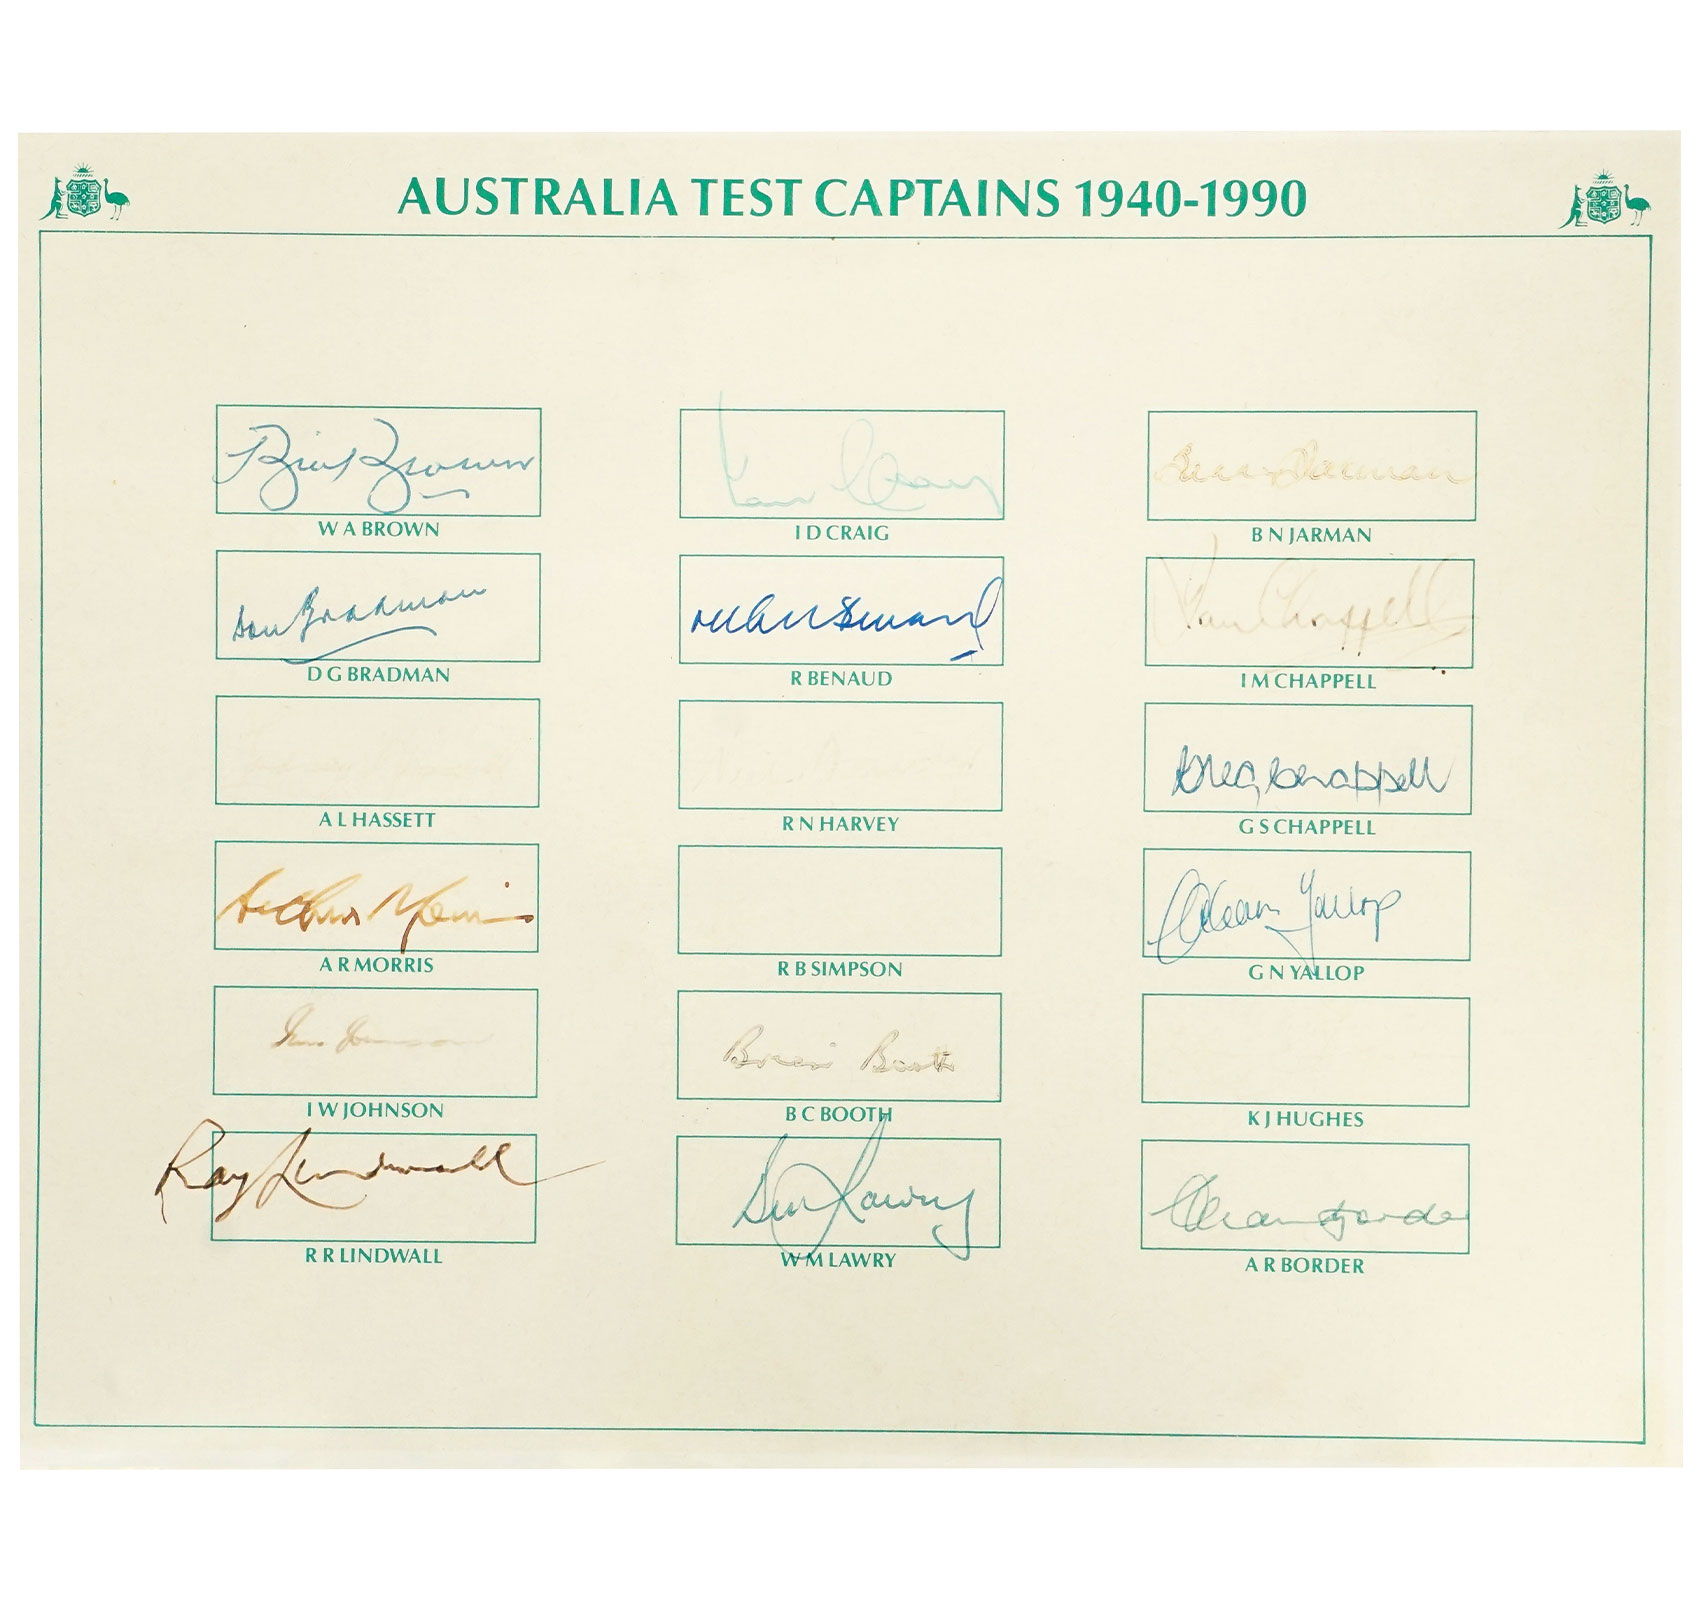 AUSTRALIA TEST CAPTAINS 1940-1990
Bill Brown
W A BROWN
Don Bradman
D G BRADMAN
A L HASSETT
Arthur Morris
A R MORRIS
Ian Johnson
I W JOHNSON
Ray Lindwall
R R LINDWALL
Ian Craig
I D CRAIG
Richie Benaud
R BENAUD
R N HARVEY
R B SIMPSON
Brian Booth
B C BOOTH
Bill Lawry
W M LAWRY
B N JARMAN
Ian Chappell
I M CHAPPELL
Greg Chappell
G S CHAPPELL
Graham Yallop
G N YALLOP
K J HUGHES
Allan Border
A R BORDER